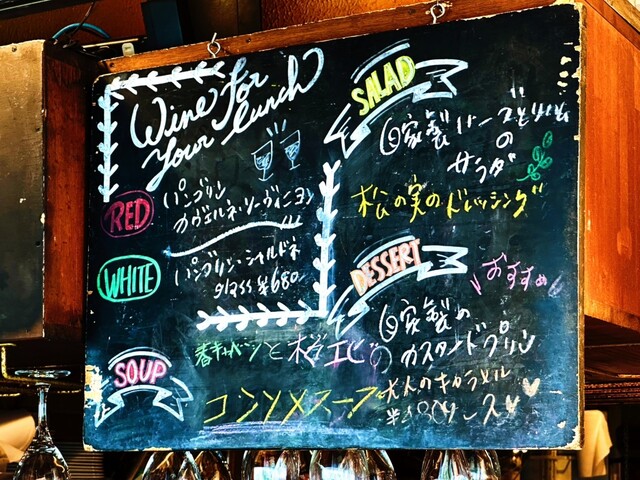 Wine for
Your lunch
RED
パンゲリン
カヴェルネ・ソーヴィニヨン
WHITE
パンゲリン・シャルドネ
glass ¥680
SOUP
春キャベツと桜エビの
コンソメスープ
SALAD
自家製ハーブとりハム
の
サラダ
松の実のドレッシング
DESSERT
おすすめ
自家製の
カスタードプリン
大人のキャラメル
ソース